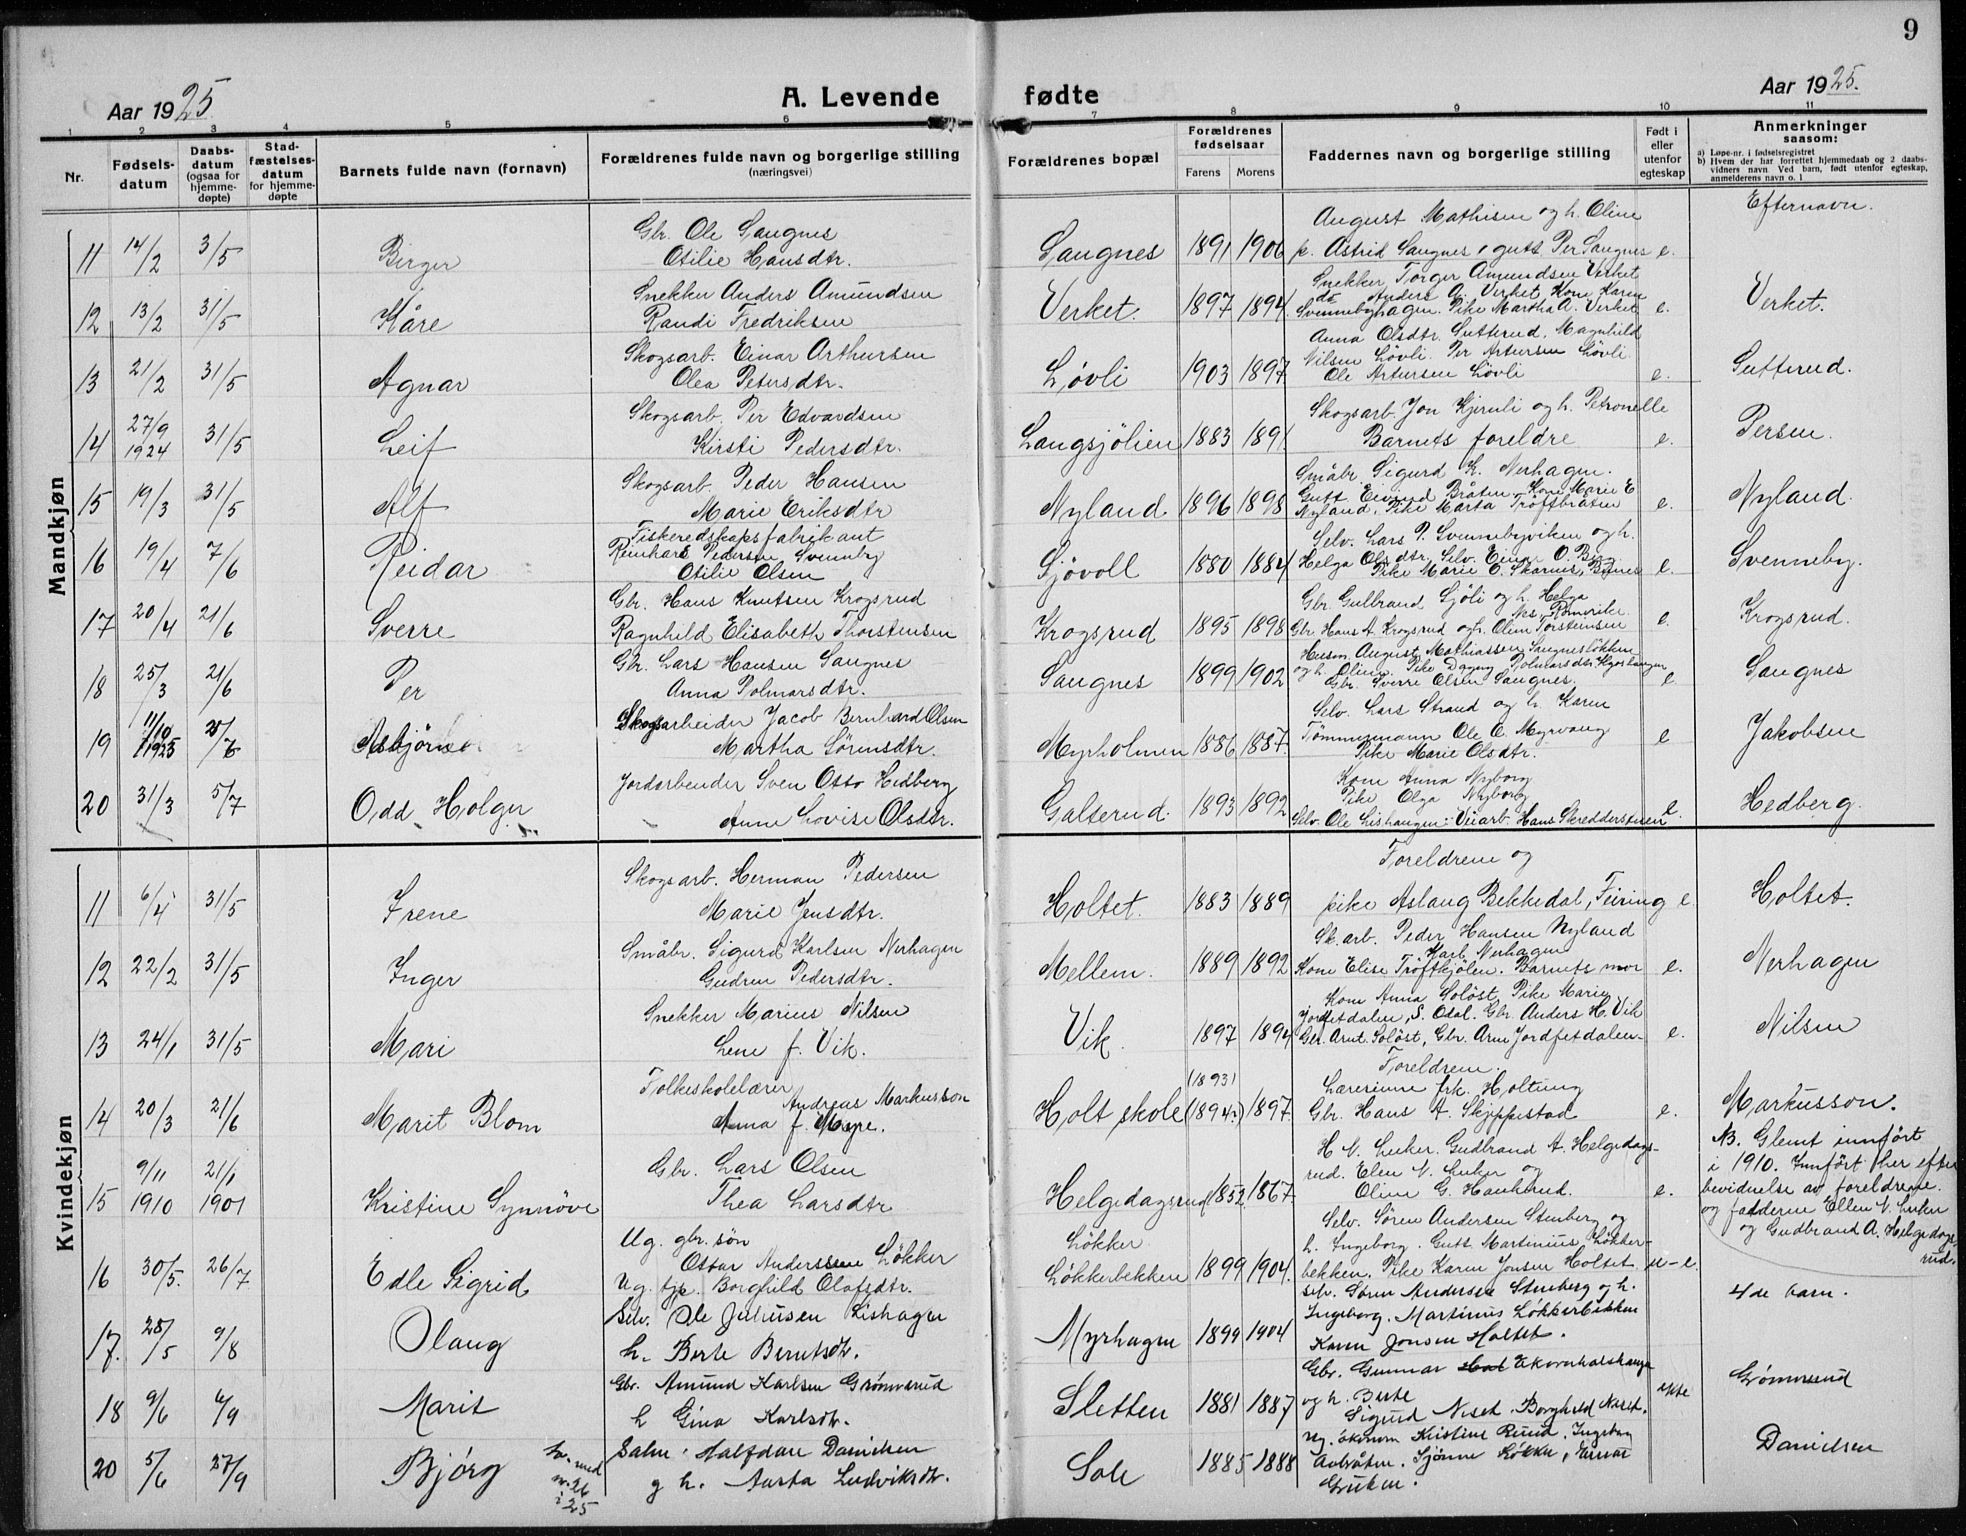 9
Aar 1925
A. Levende fødte
Aar 1925.
1 2 3 4 5 6 7 8 9 10 11
Nr.
Fødsels-
datum
Daabs-
datum
(ogsaa for
hjemme-
døpte)
Stad-
fæstelses-
datum
for hjemme-
døpte
Barnets fulde navn (fornavn)
Forældrenes fulde navn og borgerlige stilling
(næringsvei)
Forældrenes bopæl
Forældrenes
fødselsaar
Farens Morens
Faddernes navn og borgerlige stilling
Født i
eller
utenfor
egteskap
Anmerkninger
saasom:
a) Løpe-nr. i fødselsregistret
b) Hvem der har forrettet hjemmedaab og 2 daabs-
vidners navn. Ved barn, født utenfor egteskap,
anmelderens navn o. l
Efternavn.
Mandkjøn
11 14/2 3/5 Birger
Gbr. Ole Saugnes
Otilie Hansdtr.
Saugnes 1891 1906
August Mathisen og h. Oline
p. Astrid Saugnes, gutt Per Saugnes e.
12 13/2 31/5 Kåre
Snekker Anders Amundsen
Randi Fredriksen
Verket. 1897 1894
Snekker Torger Amundsen Verket
do Anders A. Verket Kone Karen
Svennebyhagen. Pike Martha A. Verket e.
Verket.
13 21/2 31/5 Agnar
Skogsarb. Einar Arthursen
Olea Petersdtr.
Løvli 1903 1897
Anna Olsdtr. Sutterud. Magnhild
Nilsen Løvli. Per Artursen Løvli
Ole Artursen Løvli e.
Sutterud.
14 27/9 1924 31/5 Leif
Skogsarb. Per Edvardsen
Kirsti Pedersdtr.
Langsjølien 1883 1891
Skogsarb. Jon Kjernli og h. Petronelle
Barnets foreldre e.
Persen.
15 19/3 31/5 Alf
Skogsarb. Peder Hansen
Marie Eriksdtr
Nyland 1896 1898
Småbr. Sigurd K. Nerhagen.
Gutt Eivind Bråten, Kone Marie E
Nyland, Pike Marta Trøftbråten e.
Nyland.
16 19/4 7/6 Reidar
Fiskeredskapsfabrikant
Reinhart Pedersen Svenneby
Otilie Olsen
Sjøvoll 1880 1884
Selv. Lars P. Svennebyviken og h.
Helga Olsdtr, Selv. Einar O. Berg
Pike Marie O. Skarnes, e.
Svenneby.
17 20/4 21/6 Sverre
Gbr. Hans Knutsen Krogsrud
Ragnhild Elisabeth Thorstensen
Krogsrud 1895 1898
Gbr. Gulbrand Sjøli og h. Helga
Nes, Romerike.
Gbr. Hans A. Krogsrud og h. Oline Torstensen e.
Krogsrud.
18 25/3 21/6 Per
Gbr. Lars Hansen Saugnes
Anna Polmarsdtr.
Saugnes 1899 1902
Husm. August Mathiassen Saugnesløkken
og h. Oline. Pike Dagny Rolmarsdtr.
Gbr. Sverre Olsen Saugnes. e
Saugnes
19 Asbjørn
Skogsarbeider Jacob Bernhard Olsen
Martha Sørensdtr.
Myrholmen 1886 1887.
Selv. Lars Strand og h. Karen
Tømmermann Ole E. Myrvang
Pike Marie Olsdtr. e
Jakobsen
20 31/3 5/7 Odd Holger
Jordarbeider Sven Otto Hedberg
Anne Lovise Olsdtr.
Galterud. 1893 1892
Kone Anna Nyborg
Pike Olga Nyborg
Selv. Ole Lishaugen: Veiarb. Hans Skredderstuen e.
Hedberg.
Kvindekjøn
11 6/4 31/5 Irene
Skogsarb. Herman Pedersen
Marie Jensdtr.
Holtet. 1883 1889
Foreldrene og
pike Aslaug Bekkedal, Feiring e.
Holtet.
12 22/2 31/5 Inger
Småbr. Sigurd Karlsen Nerhagen
Gudrun Pedersdtr.
Mellem. 1889 1892
Sk.arb. Peder Hansen Nyland
Karl Nerhagen
Kone Elise Trøftkjølen. Barnets mor e.
Nerhagen
13 24/1 31/5 Mari
Snekker Marius Nilsen
Lene f. Vik.
Vik. 1897 1894
Kone Anna Soløst, Pike Marie
Jordfetdalen, S. Odal. Gbr. Anders H. Vik
Gbr. Arnt. Soløst, Gbr. Arne Jordfetdalen. e.
Nilsen
14 20/3 21/6 Marit Blom
Folkeskolelærer
Andreas Markusson
Anna f. Myre.
Holt skole (1893) (1894.) 1897.
Foreldrene.
Lærerinne frk. Holtung
Gbr. Hans A. Skjeppestad e.
Markusson.
15 9/11 1910 21/1 1901 Kristine Synnöve
Gbr. Lars Olsen
Thea Larsdtr
Helgedagsrud 1852 1867.
H N. Luker. Gudbrand A. Helgedags-
rud. Elen N. Luker og
Oline G. Haukrud. e.
NB. Glemt innført
i 1910. Innført her efter
bevidnelse av foreldrene
og fadderne Ellen N. Luker
og Gudbrand A. Helgedags-
rud.
16 30/5. 26/7 Edle Sigrid
Ug. gbr. søn
Ottar Anderssen Løkker
Ug. tjp. Borghild Olafsdtr.
Løkker
Løkkerbekken 1899 1904.
Selv. Søren Andersen Stenberg og
h. Ingeborg. Gutt Martinius Løkker-
bekken. Pike Karen Jonsen Holtet u-e.
4de barn.
17. 28/5 9/8 Olaug
Selv. Ole Juliusen Lishagen
h. Berte Berntsdtr.
Myrhagen 1899 1904
selv. Søren Andersen Stenberg og h.
Ingeborg. Martinus Løkkerbekken
Karen Jonsen Holtet.
18 9/6 6/9 Marit
Gbr. Amund Karlsen Grønnerud
h Gina Karlsdtr.
Sletten 1881 1887
Gbr. Gunnar Ekornholshaugen
og h. Berte
Sigurd Neset. Borghild Neset. ekte
Grønnerud
20 5/6 27/9 Bjørg
nr. 26
i 25
Salm. Halfdan Danielsen
g h. Aasta Ludviksdtr.
Sole 1885 1888
Ug. Ekonom Kristine Ruud. Ingeborg
Aabråten. Sjønne Løkke, Einar
Danielsen